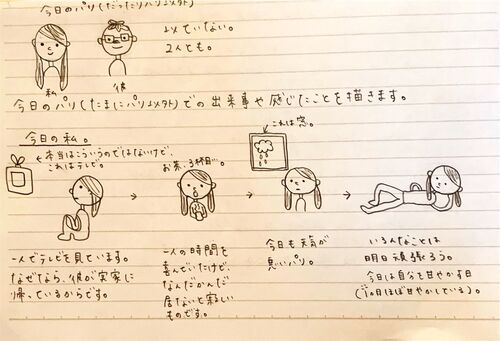 今日のパリ(だったりパリ以外)
似ていない。
2人とも。
私
彼
今日のパリ(たまにパリ以外)での出来事や感じたことを描きます。
今日の私。
←本当はこういうのではないけど、
これはテレビ。
お茶、3杯目…。
これは窓。
一人でテレビを見ています。
なぜなら、彼が実家に
帰っているからです。
一人の時間を
喜んでいたけど、
なんだかんだ
居ないと寂しい
ものです。
今日も天気が
悪いパリ。
いろんなことは
明日頑張ろう。
今日は自分を甘やかす日
(1ヵ月ほぼ甘やかしている)。